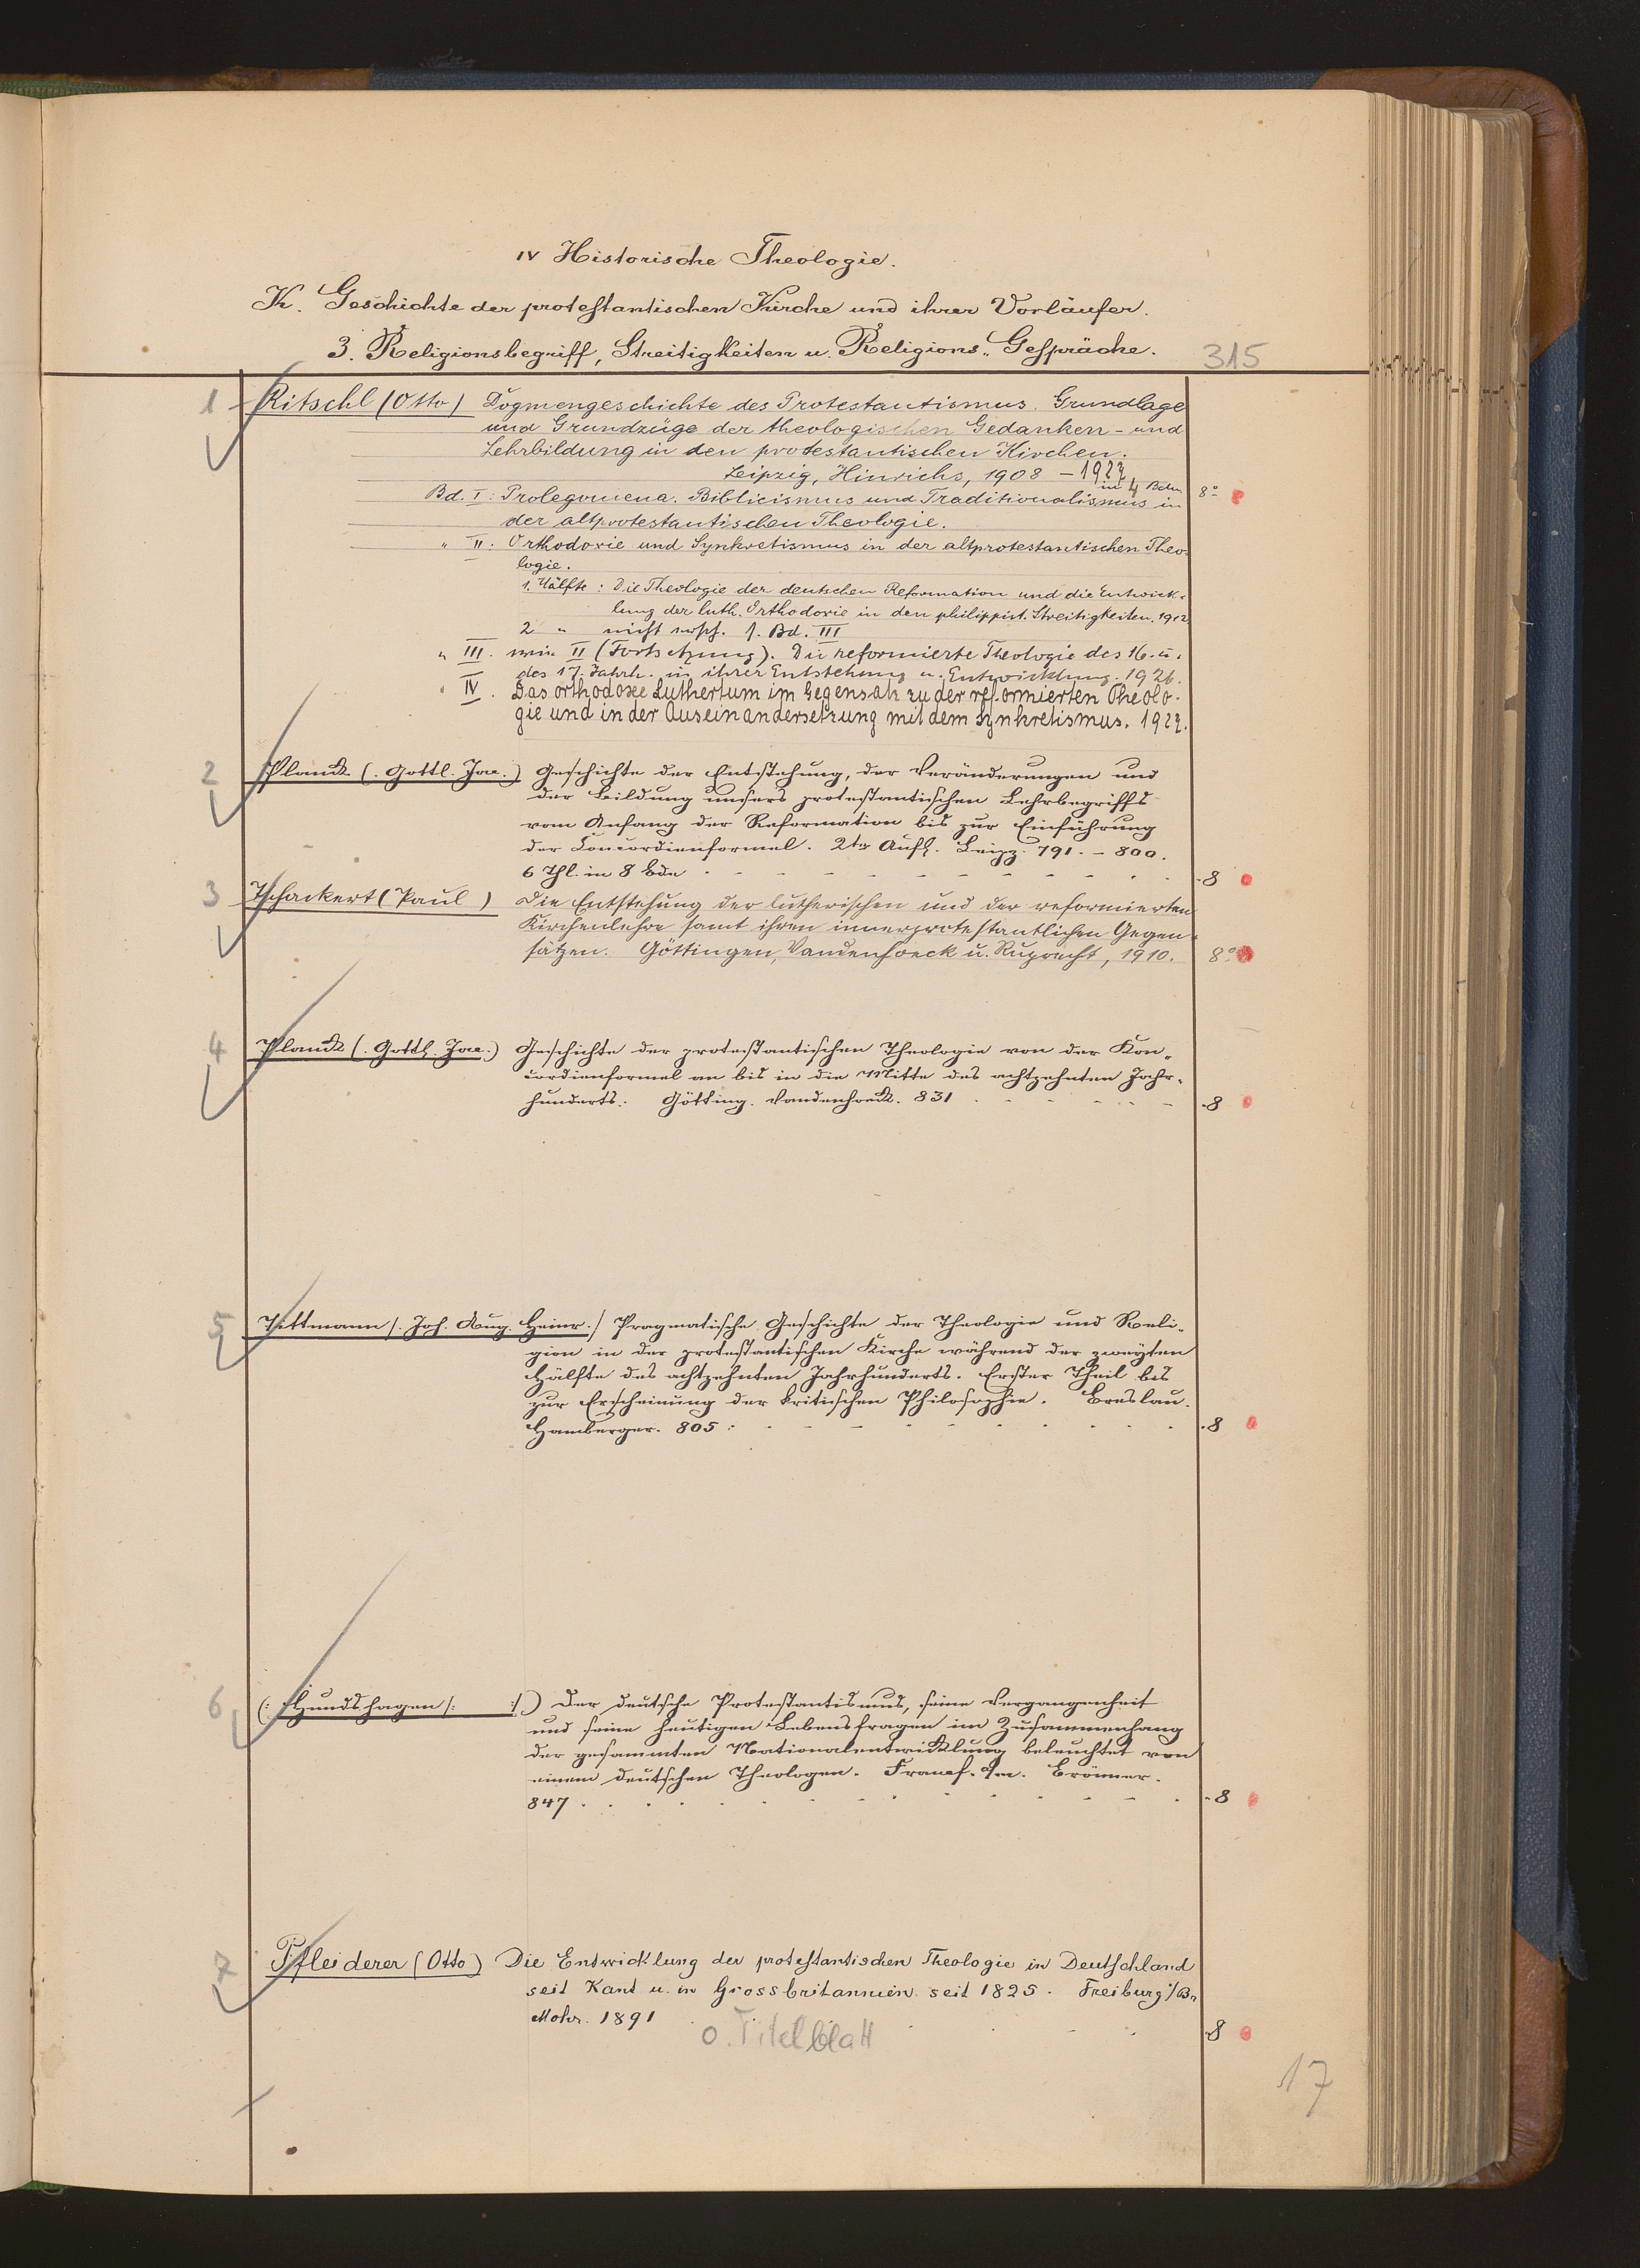 IV Historische Theologie.
K. Geschichte der protestantischen Kirche und ihrer Vorläufer.
3. Religionsbegriff, Streitigkeiten u. Religions-Gespräche.
315
1 Ritschl (Otto) Dogmengeschichte des Protestantismus. Grundlage
und Grundzüge der theologischen Gedanken- und
Lehrbildung in den protestantischen Kirchen.
Leipzig, Hinrichs, 1908 - 1927.
in 4 Bdn 8°
Bd. I: Prolegomena. Biblicismus und Traditionalismus in
der altprotestantischen Theologie.
" II: Orthodoxie und Synkretismus in der altprotestantischen Theo-
logie.
1. Hälfte: Die Theologie der deutschen Reformation und die Entwick-
lung der luth. Orthodoxie in den philippist. Streitigkeiten. 1912
2 " nicht ersch. s. Bd. III
" III. wie II (Fortsetzung). Die reformierte Theologie des 16. u.
des 17. Jahrh. in ihrer Entstehung u. Entwicklung. 1926.
" IV. Das orthodoxe Luthertum im Gegensatz zu der reformierten Theolo-
gie und in der Auseinandersetzung mit dem Synkretismus. 1927.
2 Planck (. Gottl. Jac.) Geschichte der Entstehung, der Veränderungen und
der Bildung unsers protestantischen Lehrbegriffs
vom Anfang der Reformation bis zur Einführung
der Concordienformel. 2te Aufl. Leipz. 791. - 800.
6 Thl. in 8 Bde . - - - - - - - - - . . 8
3 Tschackert (Paul) Die Entstehung der lutherischen und der reformierten
Kirchenlehre samt ihren innerprotestantlichen Gegen-
sätzen. Göttingen, Vandenhoeck u. Ruprecht, 1910. 8°
4 Planck (. Gottl. Jac.) Geschichte der protestantischen Theologie von der Kon-
cordienformel an bis in die Mitte des achtzehnten Jahr-
hunderts. Götting. Vandenhoeck. 831 . - - - - . - . 8
5 Tittmann /. Joh. Aug. Heinr. / Pragmatische Geschichte der Theologie und Reli-
gion in der protestantischen Kirche während der zweyten
Hälfte des achtzehnten Jahrhunderts. Erster Theil bis
zur Erscheinung der kritischen Philosophie. Breslau.
Hamberger. 805 : - - - - - - - - . . 8
6 (: Hundshagen /: :/.) Der deutsche Protestantismus, seine Vergangenheit
und seine heutigen Lebensfragen im Zusammenhang
der gesammten Nationalentwicklung beleuchtet von
einem deutschen Theologen. Francf. a/m. Brönner.
847 . . . . . . - . . - . - - . . 8
7 Pfleiderer (Otto) Die Entwicklung der protestantischen Theologie in Deutschland
seit Kant u. in Grossbritannien seit 1825. Freiburg i/B.
Mohr. 1891 . . . - - 8
o. Titelblatt
17